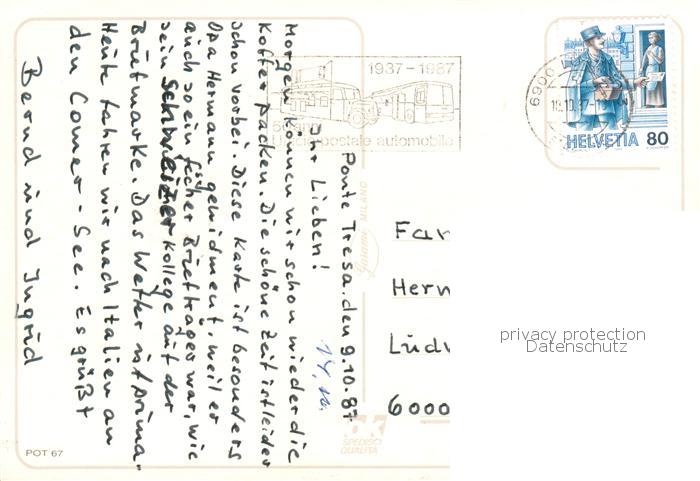 Ponte Tresa, den 9.10.87
14.10.
Ihr Lieben!
Morgen können wir schon wieder die
Koffer packen. Die schöne Zeit ist leider
schon vorbei. Diese Karte ist besonders
Opa Hermann gewidment, weil er
auch so ein fescher Briefträger war, wie
sein Schweizer Kollege auf der
Briefmarke. Das Wetter ist prima.
Heute fahren wir nach Italien an
den Comer-See. Es grüßt
Bernd und Ingrid
1937-1987
postale automobile
6900
HELVETIA 80
Far
Herm
Ludw
6000
privacy protection
Datenschutz
MILANO
ok
SPEDISCI
QUALITÀ
POT 67